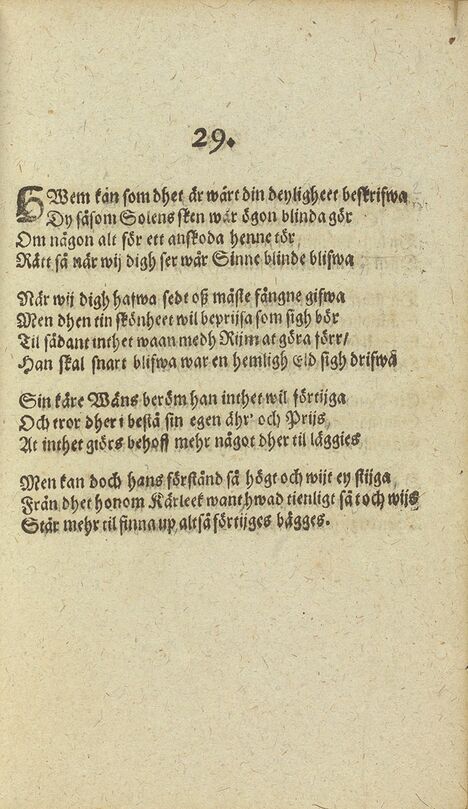 29.
HWem kan som dhet är wärt din deyligheet beskrifwa
Dy såsom Solens sken wår ögon blinda gör
Om någon alt för ett anskoda henne tör,
Rätt så när wij digh ser wår Sinne blinde blifwa
När wij digh hafwa sedt oß måste fångne gifwa
Men dhen tin skönheet wil beprijsa som sigh bör
Til sådant inthet waan medh Rijm at göra förr/
Han skal snart blifwa war en hemligh Eld sigh drifwa
Sin käre Wäns beröm han inthet wil förtijga
Och tror dher i bestå sin egen ähr' och Prijs,
At inthet giörs behoff mehr något dher til läggies
Men kan doch hans förstånd så högt och wijt ey stijga,
Från dhet honom Kärleek want hwad tienligt sät och wijs
Står mehr til finna up altså förtijges bägges.